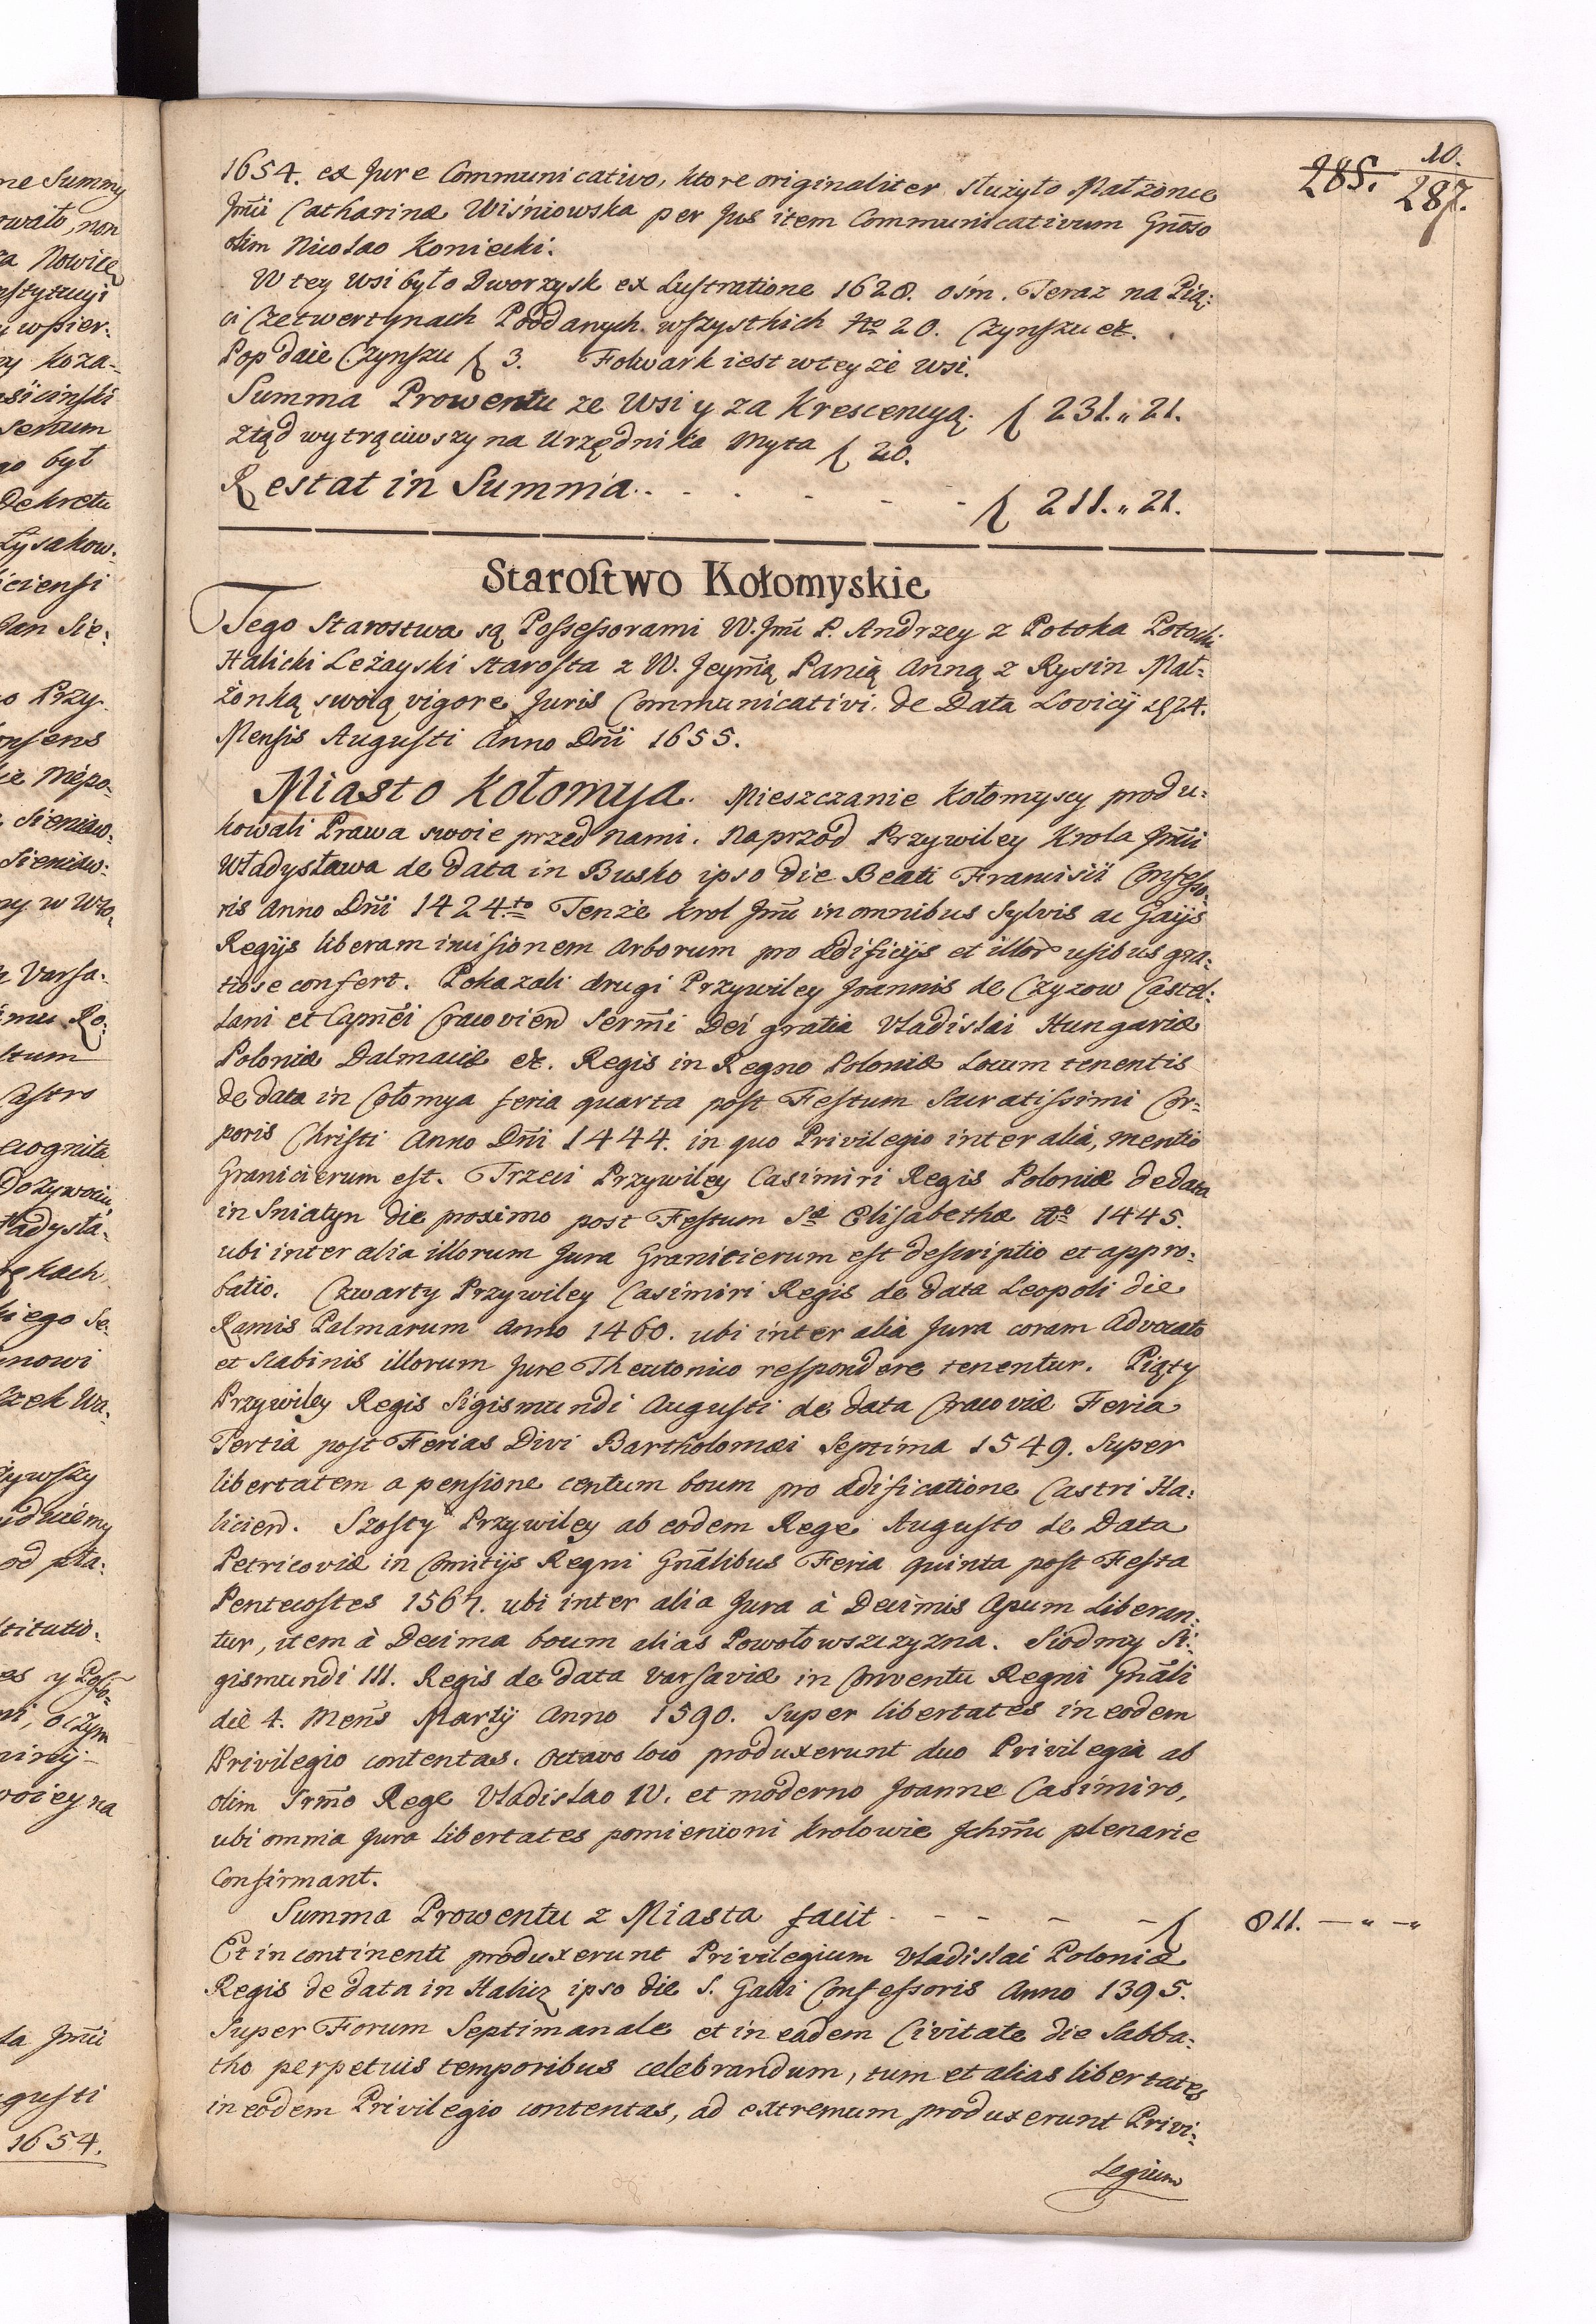 10.
285. 287.
1654. ex Jure Communicativo, ktore originaliter służyło Małżonce
Jm̃ci Catharinæ Wiśniowska per Jus item Communicativum Gnõso
olim Nicolao Koniecki.
W tey wsi było Dworzysk ex Lustratione 1628. ośm. Teraz na Pią:
ci Czetwertynach Poddanych wszystkich No 20. Czynszu etc.
Pop daie Czynszu f 3. Folwark iest wteyże wsi.
Summa Prowentu ze Wsi y za Krescencyą. f 231. „ 21.
Ztąd wytrąciwszy na Urzędnika Myta f 20.
Restat in Summa . . - - - f 211. „ 21.
Starostwo Kołomyskie
Tego Starostwa są Possessorami W. Jm̃ P. Andrzey z Potoka Potocki
Halicki Leżayski Starosta z W. Jeym̃ą Panią Anną z Rysin Mał:
żonką swoią vigore Juris Communicativi de Data Lovicij 24.
Mensis Augusti Anno Dñi 1655.
Miasto Kołomyia. Mieszczanie Kołomyscy produ:
kowali Prawa swoie przed nami. Naprzod Przywiley Krola Jm̃ci
Władysława de data in Busko ipso die Beati Francisci Confesso:
ris Anno Dñi 1424.to Tenże Krol Jm̃ in omnibus Sylvis ac Gaijs
Regijs liberam incisionem Arborum pro ædificijs et illor usibus gra:
tiose confert. Pokazali drugi Przywiley Joannis de Czyzow Castel:
lani et Capñei Cracovien Serm̃i Dei gratia Vladislai Hungariæ
Poloniæ Dalmaciæ etc. Regis in Regno Poloniæ Locum tenentis
de data in Cołomya feria quarta post Festum Sacratissimi Cor=
poris Christi Anno Dñi 1444. in quo Privilegio inter alia, mentio
Granicierum est. Trzeci Przywiley Casimiri Regis Poloniæ de data
in Sniatyn die proximo post Festum Sæ Elisabethæ Ao 1445.
ubi inter alia illorum Jura Granicierum est descriptio et appro:
batio. Czwarty Przywiley Casimiri Regis de data Leopoli die
Ramis Palmarum Anno 1460. ubi inter alia Jura coram Advocato
et Scabinis illorum Jure Theutonico respondere tenentur. Piąty
Przywiley Regis Sigismundi Augusti de data Cracoviæ Feria
Tertia post Ferias Divi Bartholomæi Septima 1549. Super
libertatem a pensione centum boum pro ædificatione Castri Ha:
licien. Szosty Przywiley ab eodem Rege Augusto de Data
Petricoviæ in Comitijs Regni Gnãlibus Feria quinta post Festa
Pentecostes 1567. ubi inter alia Jura à Decimis Apum Liberan:
tur, item à Decima boum alias Powołowszczyzna. Siodmy Si:
gismundi III. Regis de data Varsaviæ in Conventu Regni Gnãli
die 4. Mens̃ Martij Anno 1590. Super libertates in eodem
Privilegio contentas. Octavo loco produxerunt duo Privilegia ab
olim Srm̃o Rege Vladislao IV. et moderno Joanne Casimiro,
ubi omnia Jura libertates pomienioni Krolowie Jchm̃ plenarie
Confirmant.
Summa Prowentu z Miasta facit - - - - - f 811. — „ — „
Et in continenti produxerunt Privilegium Vladislai Poloniæ
Regis de data in Halicz ipso die S. Galli Confessoris Anno 1395.
Super Forum Septimanale et in eadem Civitate die Sabba:
tho perpetuis temporibus celebrandum, tum et alias libertates
in eodem Privilegio contentas, ad extremum produxerunt Privi:
legium